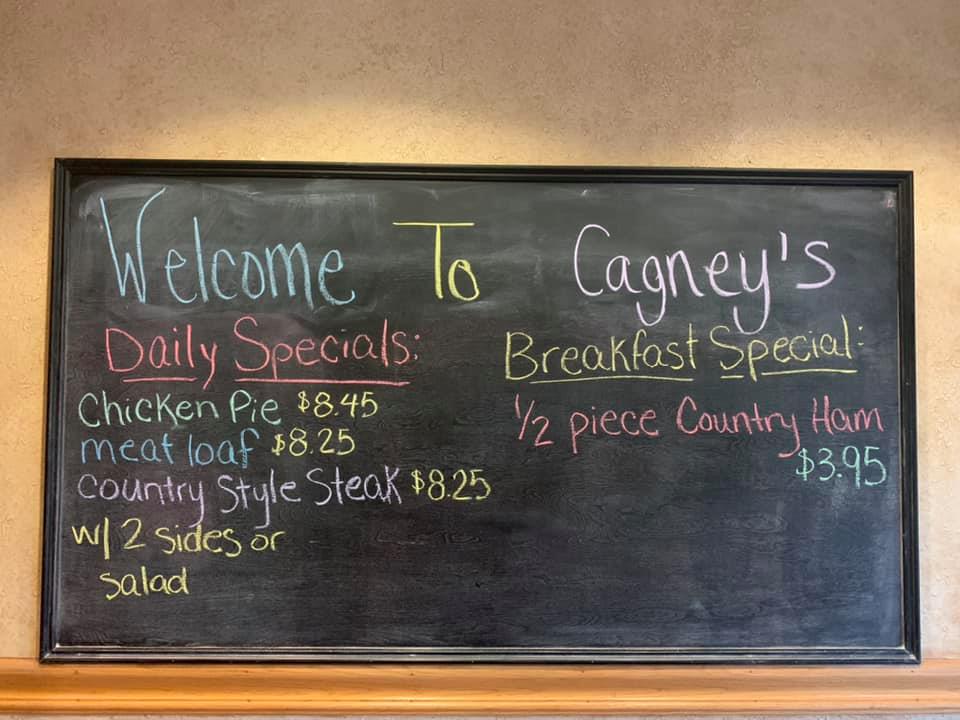 Welcome To Cagney's
Daily Specials:
Chicken Pie $8.45
meat loaf $8.25
country Style Steak $8.25
w/ 2 sides or
salad
Breakfast Special:
1/2 piece Country Ham
$3.95